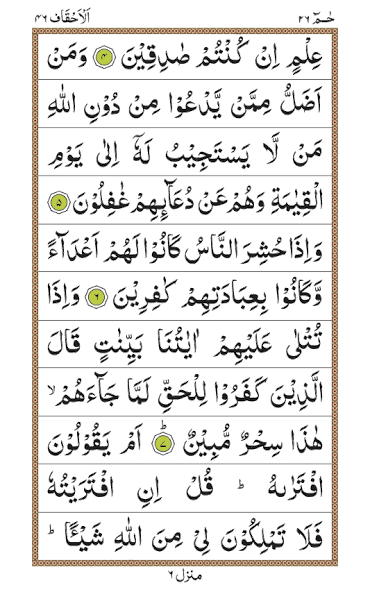 حٰمٓ ٢٦ اَلْاَحْقَاف ٤٦
عِلْمٍ اِنْ كُنْتُمْ صٰدِقِيْنَ ۴ وَمَنْ
اَضَلُّ مِمَّنْ يَّدْعُوْا مِنْ دُوْنِ اللّٰهِ
مَنْ لَّا يَسْتَجِيْبُ لَهٗٓ اِلٰى يَوْمِ
الْقِيٰمَةِ وَهُمْ عَنْ دُعَآىِٕهِمْ غٰفِلُوْنَ ۵
وَاِذَا حُشِرَ النَّاسُ كَانُوْا لَهُمْ اَعْدَآءً
وَّكَانُوْا بِعِبَادَتِهِمْ كٰفِرِيْنَ ۶ وَاِذَا
تُتْلٰى عَلَيْهِمْ اٰيٰتُنَا بَيِّنٰتٍ قَالَ
الَّذِيْنَ كَفَرُوْا لِلْحَقِّ لَمَّا جَآءَهُمْ ۙ
هٰذَا سِحْرٌ مُّبِيْنٌ ۷ ؕ اَمْ يَقُوْلُوْنَ
افْتَرٰىهُ ؕ قُلْ اِنِ افْتَرَيْتُهٗ
فَلَا تَمْلِكُوْنَ لِيْ مِنَ اللّٰهِ شَيْـًٔا ؕ
منزل ۶